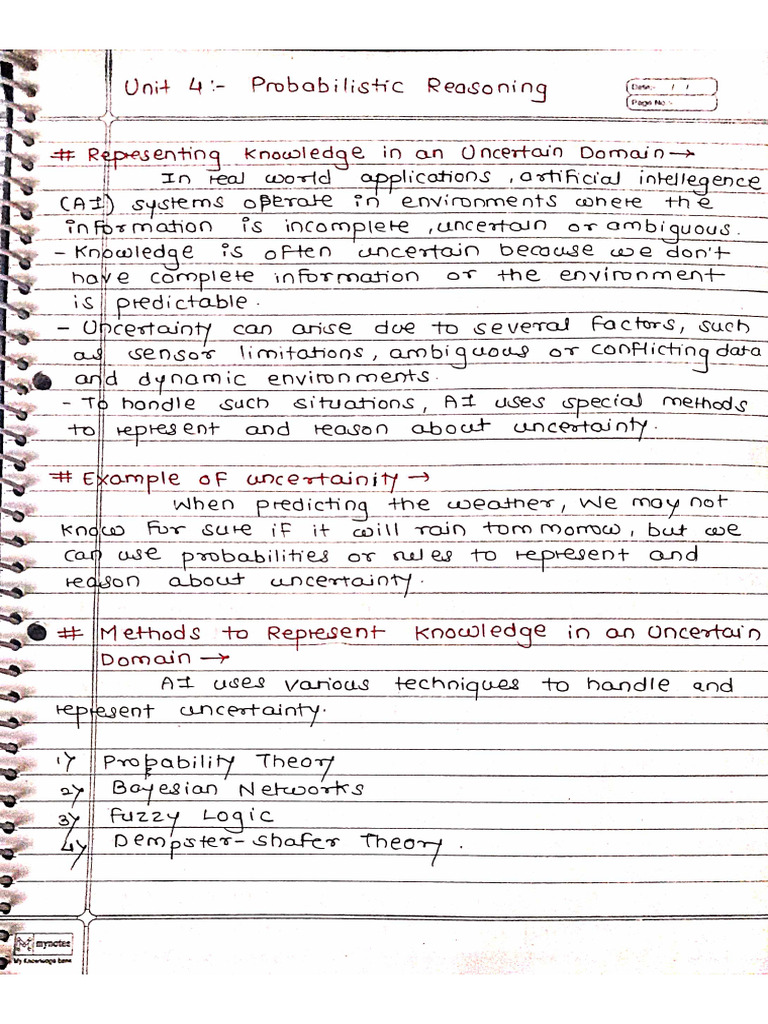 Unit 4:- Probabilistic Reasoning
Date:- / /
Page No:-
# Representing Knowledge in an Uncertain Domain→
In real world applications, artificial intellegence
(AI) systems operate in environments where the
information is incomplete, uncertain or ambiguous.
- Knowledge is often uncertain because we don't
have complete information or the environment
is predictable.
- Uncertainty can arise due to several factors, such
as sensor limitations, ambiguous or conflicting data
and dynamic environments.
- To handle such situations, AI uses special methods
to represent and reason about uncertainty.
# Example of uncertainity →
When predicting the weather, we may not
know for sure if it will rain tommorrow, but we
can use probabilities or rules to represent and
reason about uncertainty.
# Methods to Represent Knowledge in an Uncertain
Domain →
AI uses various techniques to handle and
represent uncertainty.
1) Probability Theory
2) Bayesian Networks
3) Fuzzy Logic
4) Dempster-Shafer Theory.
mynotes
My Knowledge Bank